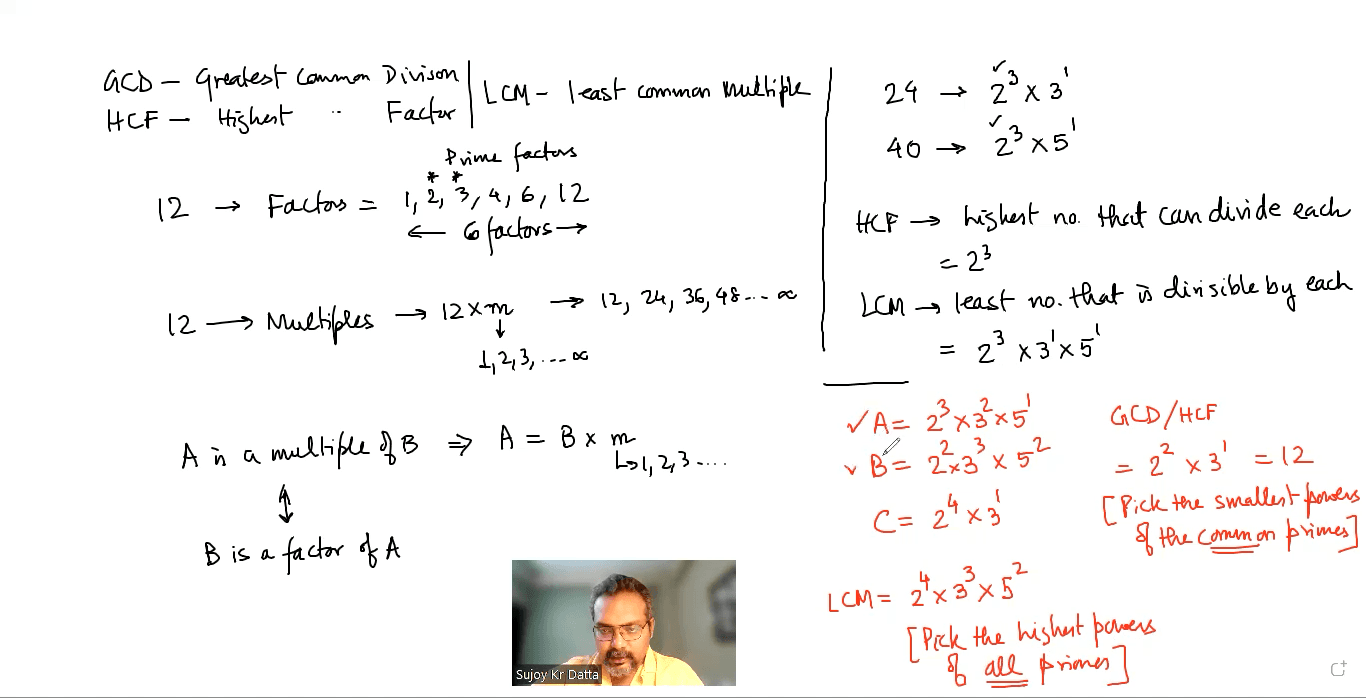 GCD – Greatest Common Divison
HCF – Highest " Factor
LCM – least common multiple
Prime factors
* *
12 → Factors = 1, 2, 3, 4, 6, 12
← 6 factors →
12 → Multiples → 12 × m → 12, 24, 36, 48 ... ∞
↓
1, 2, 3, ... ∞
A is a multiple of B ⇒ A = B × m
↳ 1, 2, 3 ....
↕
B is a factor of A
✓
24 → 2³ × 3¹
✓
40 → 2³ × 5¹
HCF → highest no. that can divide each
= 2³
LCM → least no. that is divisible by each
= 2³ × 3¹ × 5¹
✓ A = 2³ × 3² × 5¹
✓ B = 2² × 3³ × 5²
C = 2⁴ × 3¹
GCD/HCF
= 2² × 3¹ = 12
[Pick the smallest powers
of the common primes]
LCM = 2⁴ × 3³ × 5²
[Pick the highest powers
of all primes]
Sujoy Kr Datta